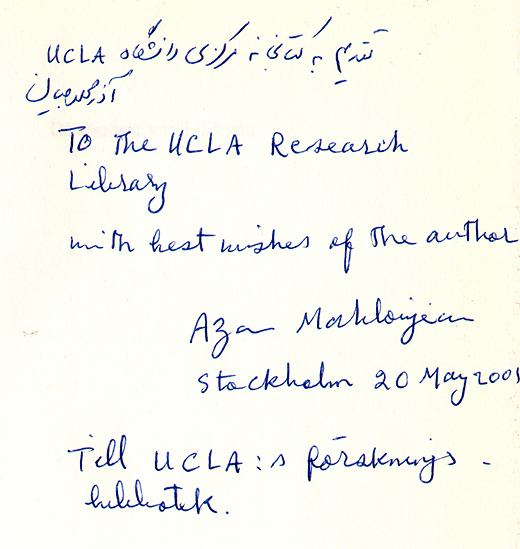 تقدیم به کتابخانه مرکزی دانشگاه UCLA
آذر محلوجیان
To the UCLA Research
Library
with best wishes of the author
Azar Mahloujian
Stockholm 20 May 2005
Till UCLA:s forsknings-
bibliotek.